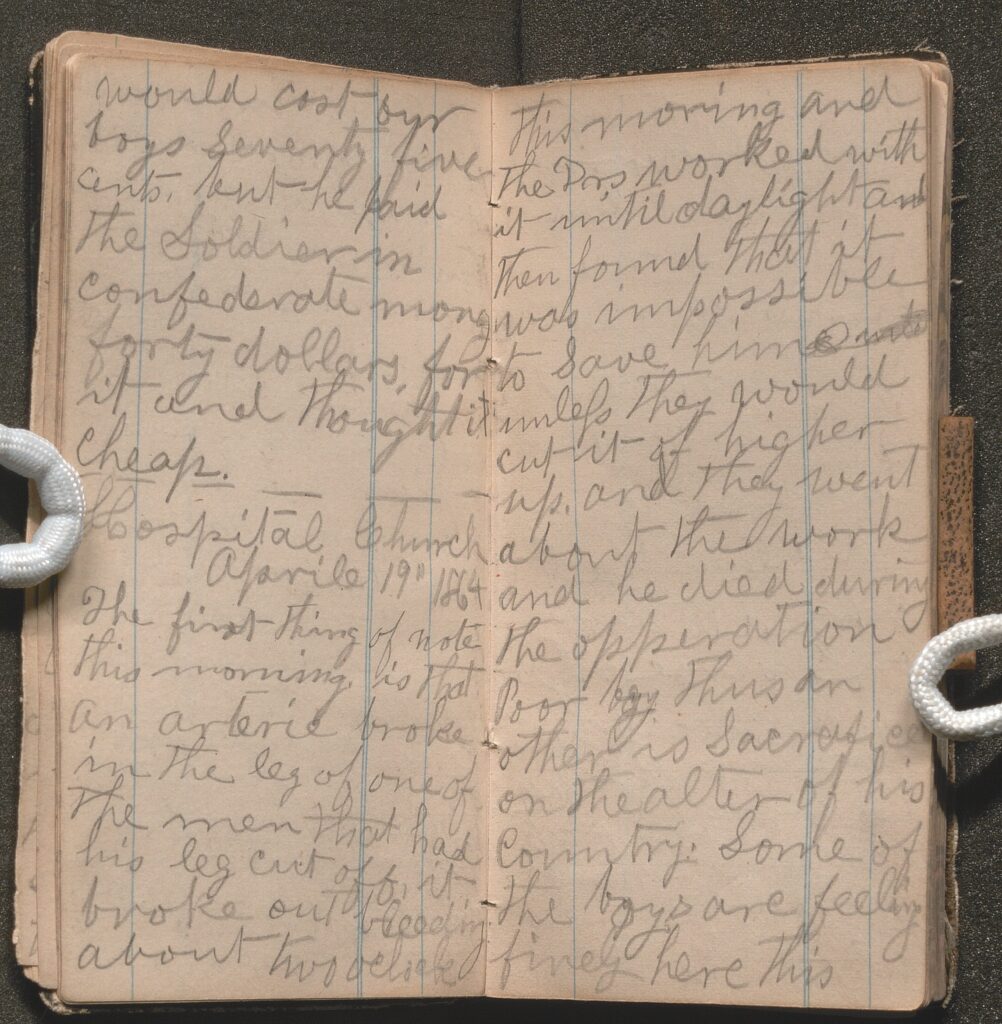 would cost our
boys Seventy five
cents. but he paid
the Soldier in
confederate mony
forty dollars, for
it and thought it
cheap.
Hospital Church
Aprile 19" 1864
The first thing of note
this morning is that
an arterie broke
in the leg of one of
the men that had
his leg cut off, it
broke out bleeding
about two oclock
this morning and
the Drs worked with
it until daylight and
then found that it
was impossible
to save him
unless they would
cut it of higher
up. and they went
about the work
and he died during
the opperation
Poor boy thus an
other is Sacrafice
on the alter of his
Country. Some of
the boys are feeling
finely here this